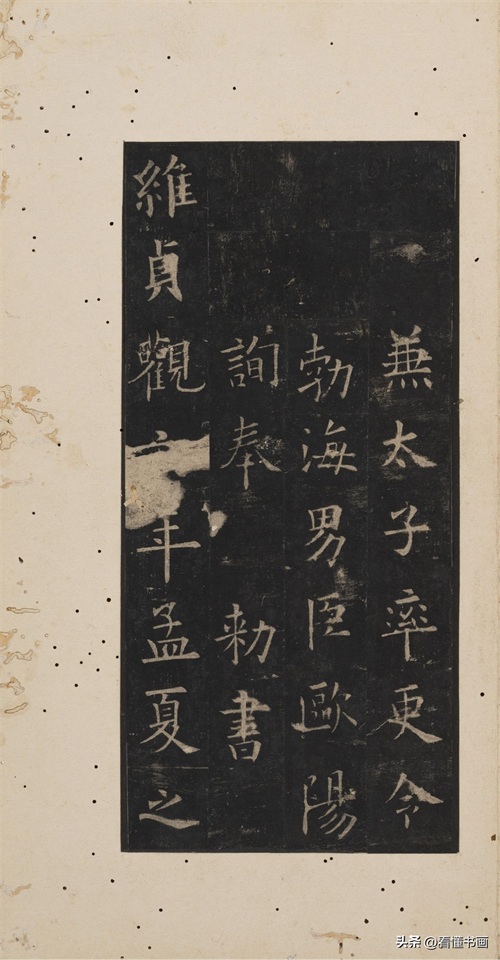 兼太子率更令
勃海男臣歐陽
詢奉 勅書
維貞觀六年孟夏之
头条 @看懂书画